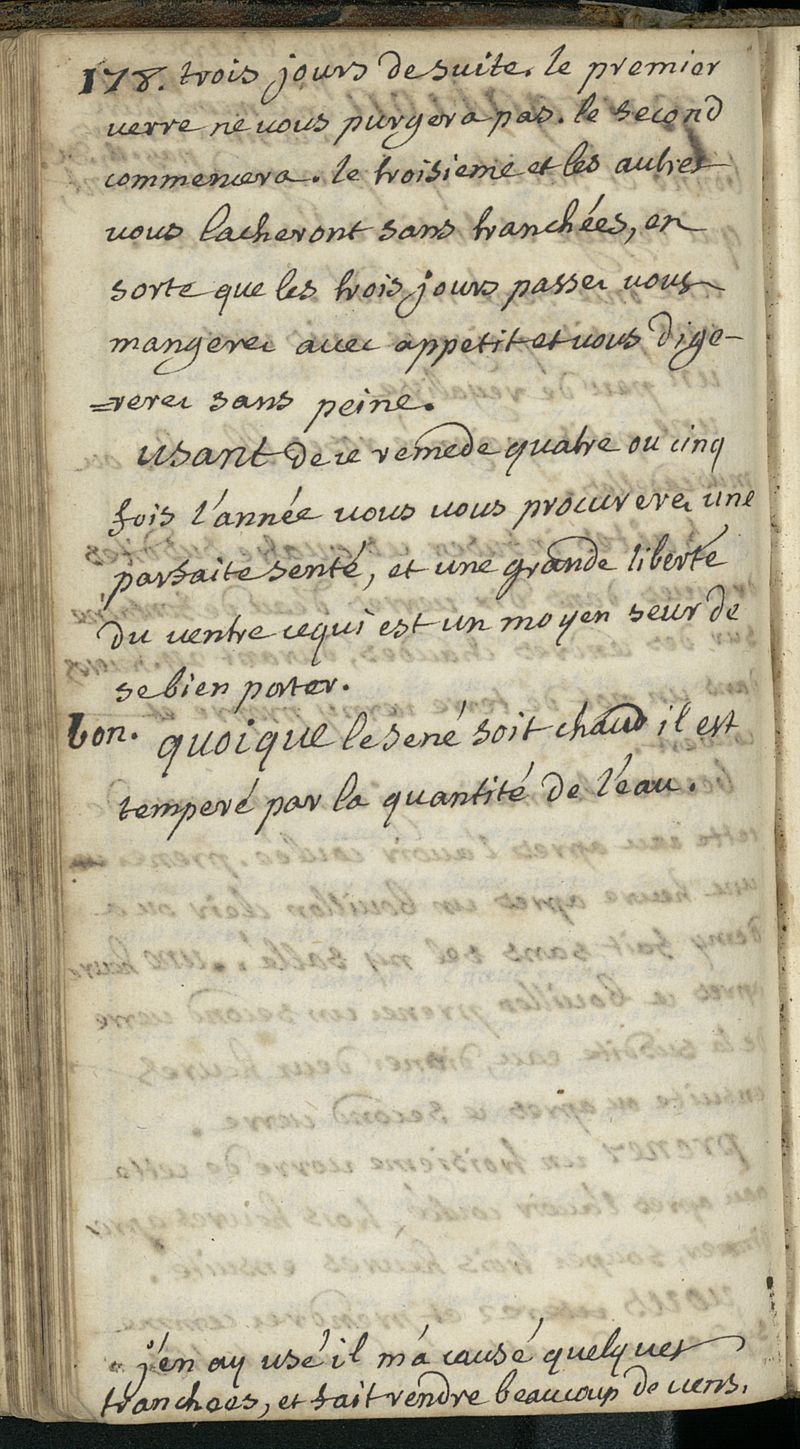 178. trois jours de suite. le premier
verre ne vous purgera pas. le second
commencera. le troisieme et les autres
vous lacheront sans tranchées, en
sorte que les trois jours passez vous
mangerez avec appetit et vous dige-
=rerez sans peine.
usant de ce remede quatre ou cinq
fois l'année vous vous procurerez une
parfaite senté, et une grande liberté
du ventre ce qui est un moyen seur de
se bien porter.
bon. quoique le sené soit chaud il est
temperé par la quantité de l'eau.
j'en ay usé il m'a causé quelques
tranchees, et fait rendre beaucoup de vens.